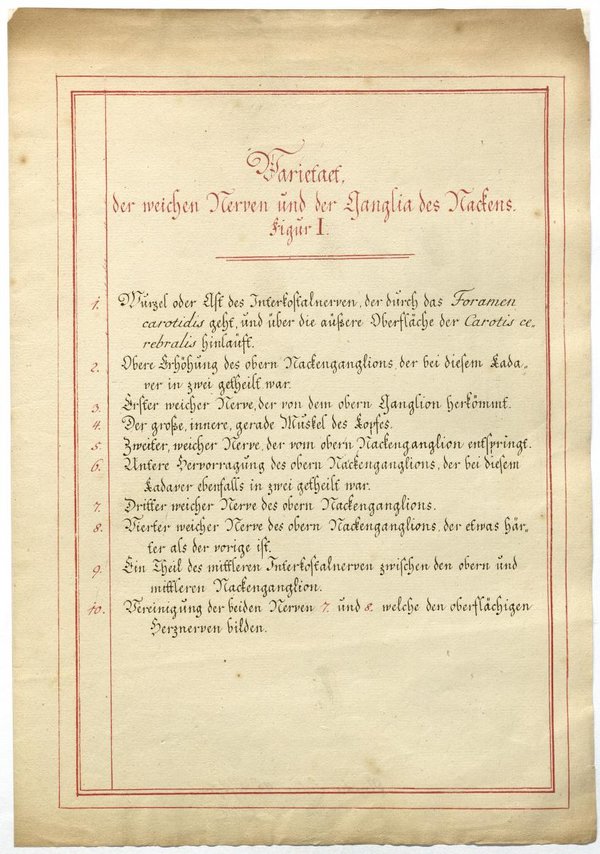 Varietaet,
der weichen Nerven und der Ganglia des Nackens.
Figur I.
1. Wurzel oder Ast des Interkostalnerven, der durch das Foramen
carotidis geht, und über die äußere Oberfläche der Carotis ce-
rebralis hinläuft.
2. Obere Erhöhung des obern Nackenganglions, der bei diesem Kada-
ver in zwei getheilt war.
3. Erster weicher Nerve, der von dem obern Ganglion herkömmt.
4. Der große, innere, gerade Muskel des Kopfes.
5. Zweiter, weicher Nerve, der vom obern Nackenganglion entspringt.
6. Untere Hervorragung des obern Nackenganglions, der bei diesem
Kadaver ebenfalls in zwei getheilt war.
7. Dritter weicher Nerve des obern Nackenganglions.
8. Vierter weicher Nerve des obern Nackenganglions, der etwas här-
ter als der vorige ist.
9. Ein Theil des mittleren Interkostalnerven zwischen den obern und
mittleren Nackenganglion.
10. Vereinigung der beiden Nerven 7. und 8. welche den oberflächigen
Herznerven bilden.